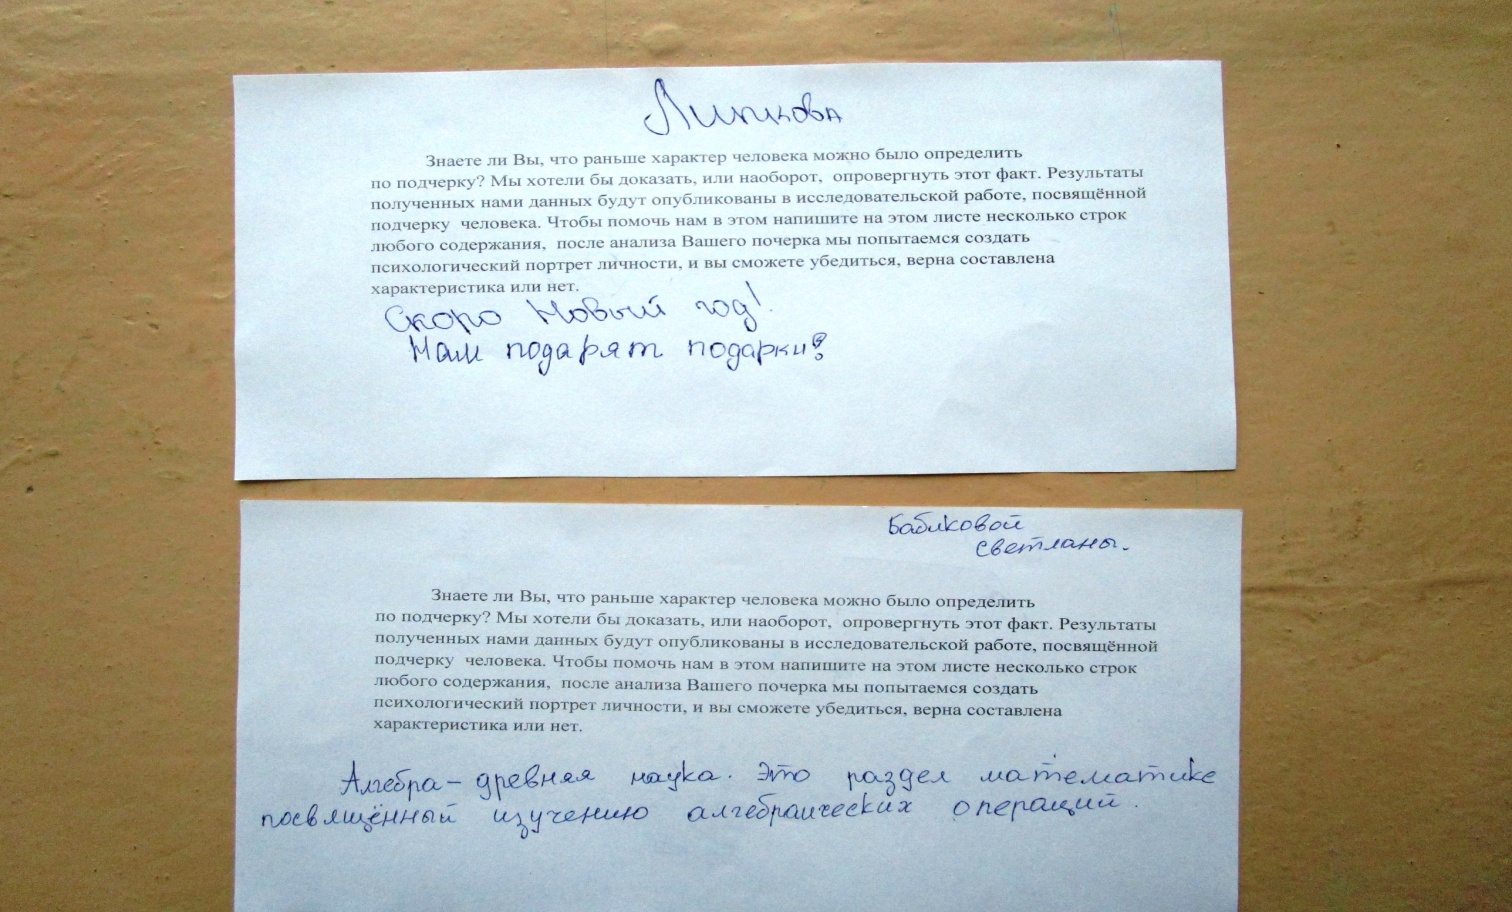 Липкова
Знаете ли Вы, что раньше характер человека можно было определить
по подчерку? Мы хотели бы доказать, или наоборот, опровергнуть этот факт. Результаты
полученных нами данных будут опубликованы в исследовательской работе, посвящённой
подчерку человека. Чтобы помочь нам в этом напишите на этом листе несколько строк
любого содержания, после анализа Вашего почерка мы попытаемся создать
психологический портрет личности, и вы сможете убедиться, верна составлена
характеристика или нет.
Скоро Новый год!
Нам подарят подарки?
Бабиковой
Светланы.
Знаете ли Вы, что раньше характер человека можно было определить
по подчерку? Мы хотели бы доказать, или наоборот, опровергнуть этот факт. Результаты
полученных нами данных будут опубликованы в исследовательской работе, посвящённой
подчерку человека. Чтобы помочь нам в этом напишите на этом листе несколько строк
любого содержания, после анализа Вашего почерка мы попытаемся создать
психологический портрет личности, и вы сможете убедиться, верна составлена
характеристика или нет.
Алгебра – древняя наука. Это раздел математике
посвящённый изучению алгебраических операций.